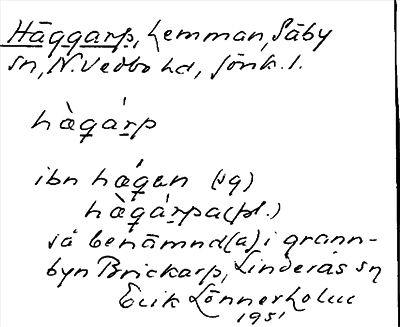 Häggarp, hemman, Säby
sn, N. Vedbo hd, Jönk. l.
hàgárp
ibn hágan (sg)
hàgárpa (pl.)
så benämnd(a) i grann-
byn Brickarp, Linderås sn
Erik Lönnerholm
1951